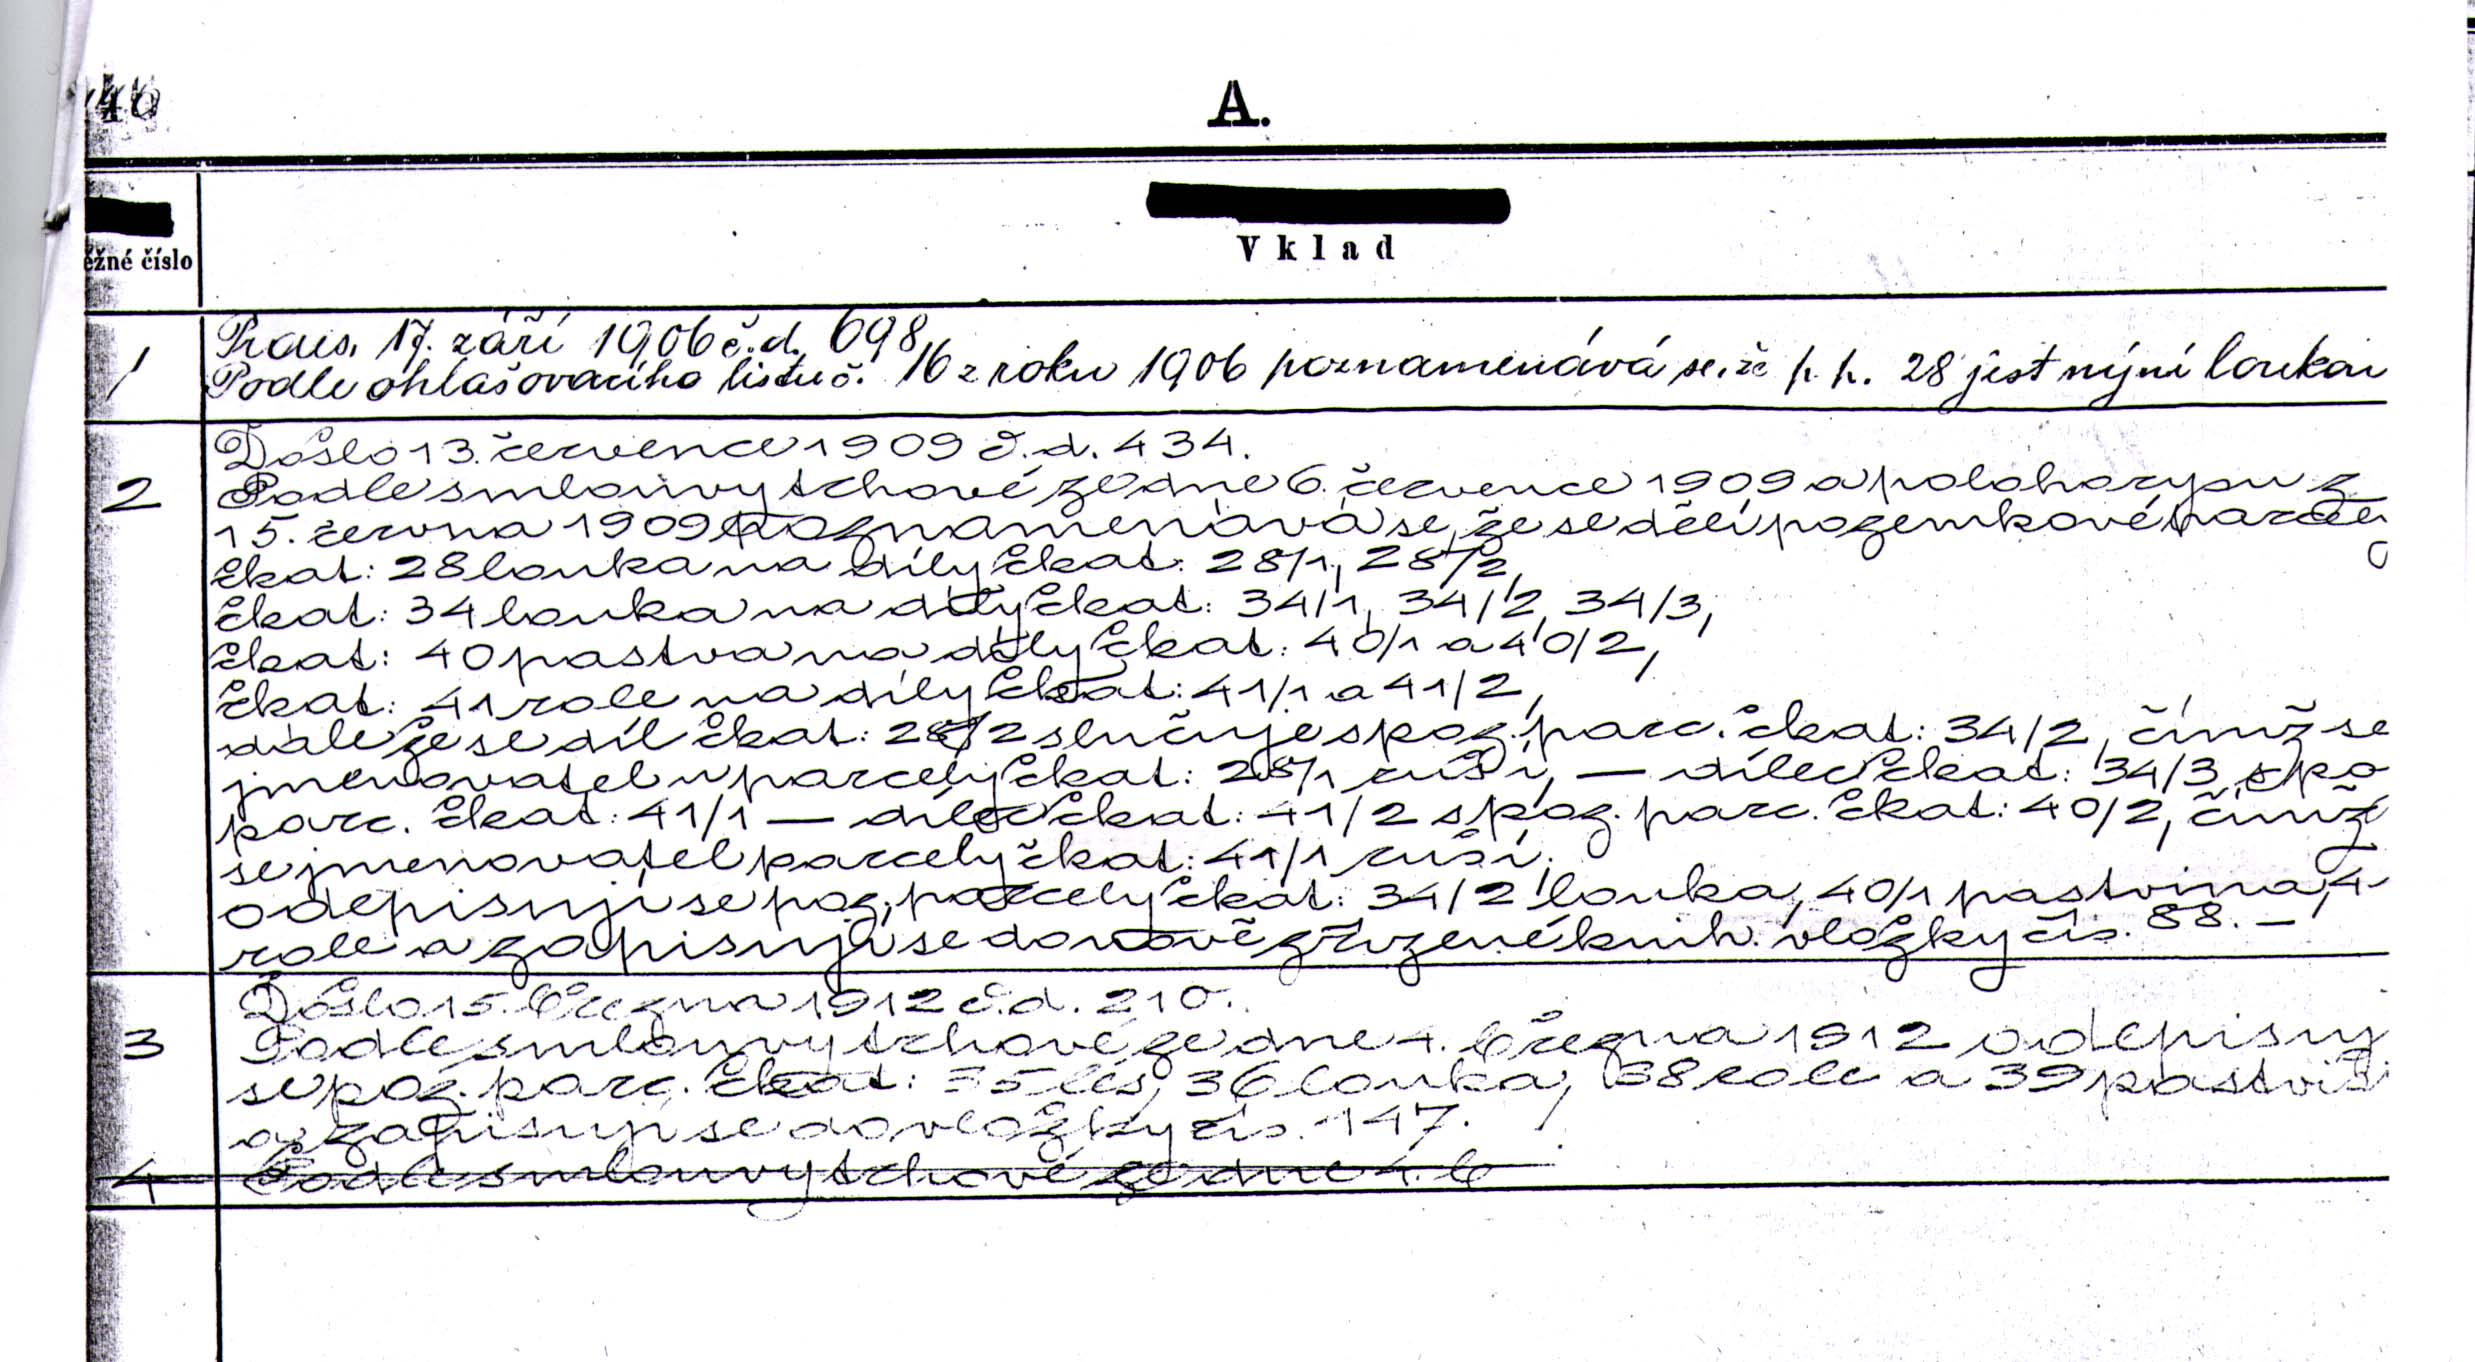 46
A.
ěžné číslo
Vklad
1
Praes. 17. září 1906 č.d. 698
Podle ohlašovacího listu č. 16 z roku 1906 poznamenává se, že p. p. 28 jest nyní loukou
2
Došlo 13. července 1909 č.d. 434.
Podle smlouvy trhové ze dne 6. července 1909 a polohopisu z
15. června 1909 poznamenává se, že se dělí pozemkové parcely
čkat: 28 louka na díly čkat: 28/1, 28/2,
čkat: 34 louka na díly čkat: 34/1, 34/2, 34/3,
čkat: 40 pastva na díly čkat: 40/1 a 40/2,
čkat: 41 role na díly čkat: 41/1 a 41/2,
dále že se díl čkat: 28/2 slučuje s poz. parc. čkat: 34/2, čímž se
jmenovatel u parcely čkat: 28/1 ruší, — dílec čkat: 34/3, s po
parc. čkat: 41/1 — dílec čkat: 41/2 s poz. parc. čkat: 40/2, čímž
se jmenovatel parcely čkat: 41/1 ruší.
odepisují se poz. parcely čkat: 34/2 louka, 40/1 pastvina, 4
role a zapisují se do nově zřízené knih. vložky čís. 88. —
3
Došlo 15. března 1912 č.d. 210.
Podle smlouvy trhové ze dne 4. března 1912 odepisuj
se poz. parc. čkat: 35 les, 36 louka, 38 role a 39 pastviš
a zapisují se do vložky čís. 147.
4
Podle smlouvy trhové ze dne 4. b